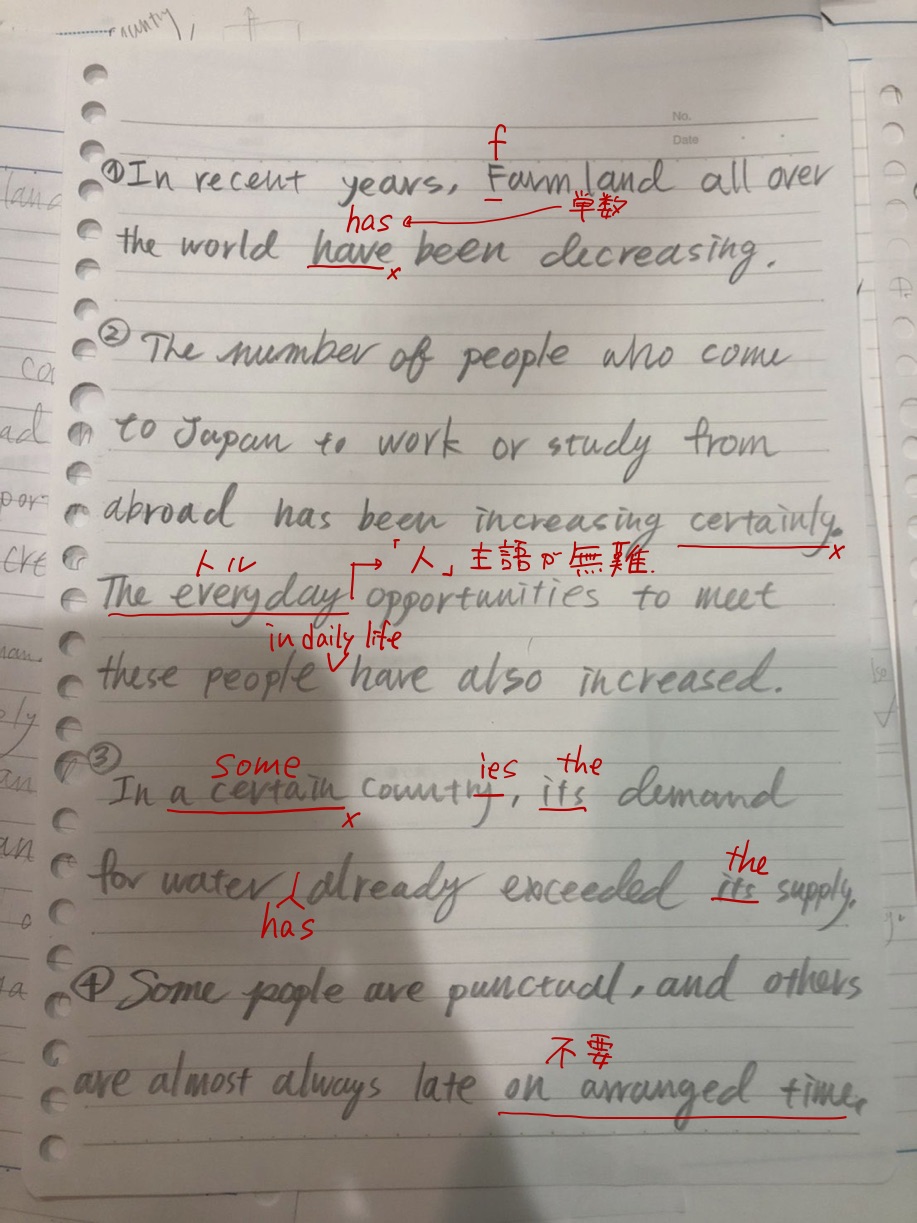 No.
Date
f
①In recent years, Farmland all over
has 単数
the world have been decreasing.
x
②The number of people who come
to Japan to work or study from
abroad has been increasing certainly.
x
トル 「人」主語が無難.
The everyday opportunities to meet
in daily life
these people have also increased.
③ some ies the
In a certain country, its demand
x
the
for water already exceeded its supply.
has
④Some people are punctual, and others
不要
are almost always late on arranged time.